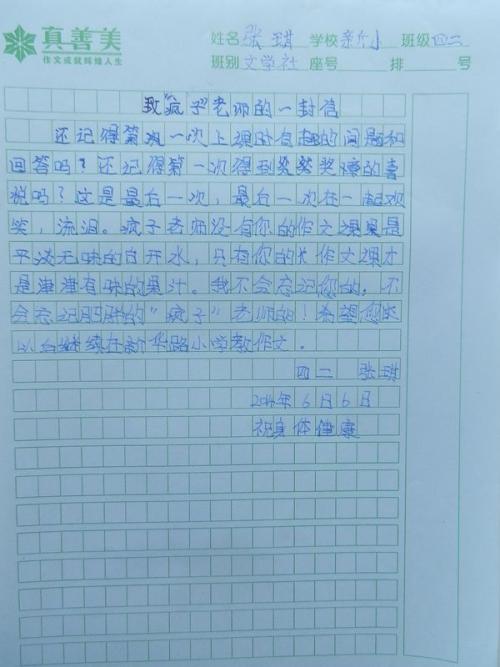 真善美
作文成就辉煌人生
姓名 张琪 学校 新小 班级 四二
班别 文学社 座号 排 号
致"疯子"老师的一封信
还记得第一次上课时有趣的问题和
回答吗？还记得第一次得到奖的喜
悦吗？这是最后一次，最后一次在一起欢
笑，流泪。疯子老师没有你的作文课是
平淡无味的白开水，只有你的作文课才
是津津有味的果汁。我不会忘记您的，不
会忘记胖胖的"疯子"老师的！希望您
以后继续在新华路小学教作文。
四二 张琪
2014年6月6日
祝身体健康